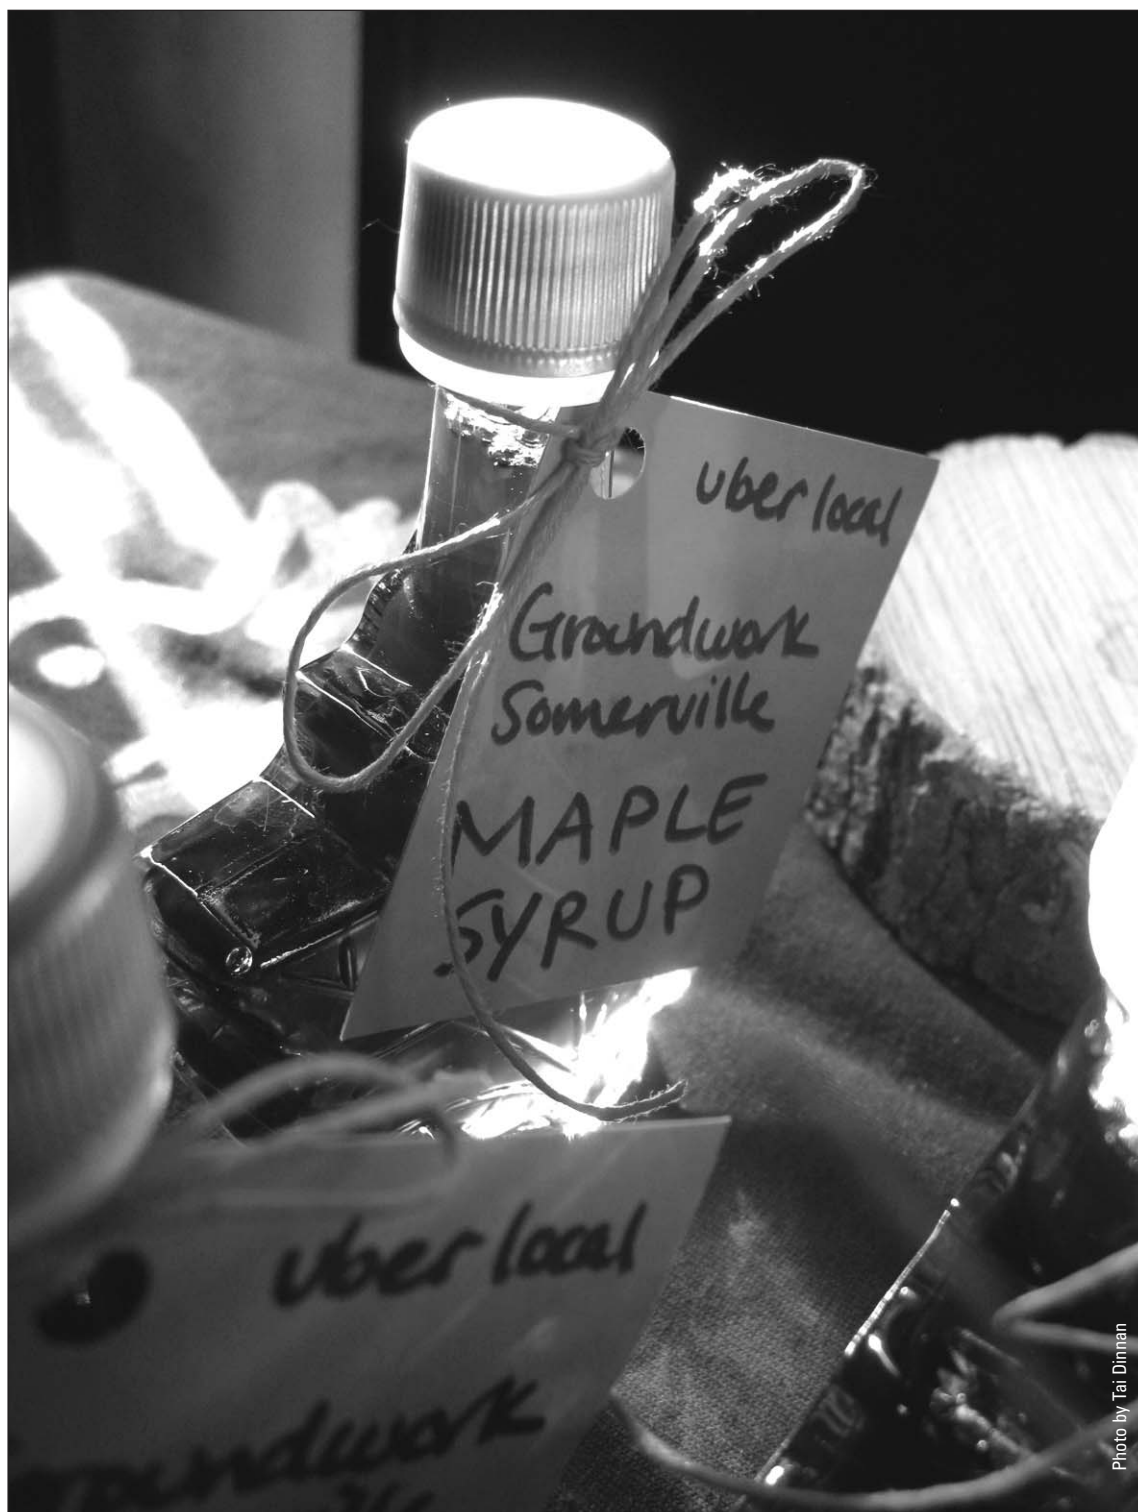 uber local
Groundwork
Somerville
MAPLE
SYRUP
uber local
Groundwork
Photo by Tai Dinnan